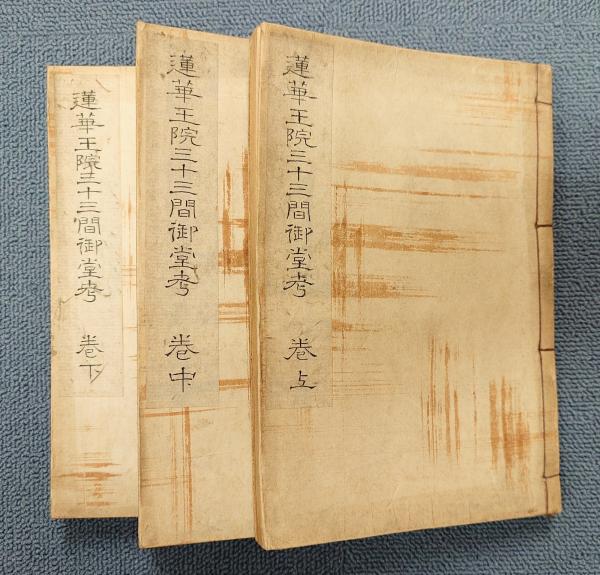 蓮華王院三十三間御堂考 卷上
蓮華王院三十三間御堂考 卷中
蓮華王院三十三間御堂考 卷下